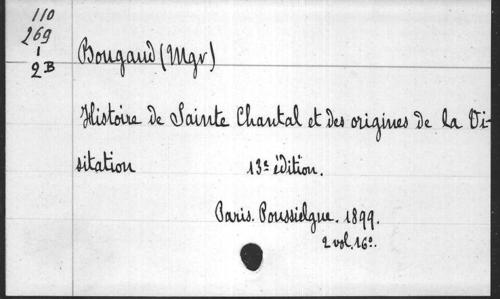 110
269
1
2B
Bougaud (Mgr)
Histoire de Sainte Chantal et des origines de la Vi-
sitation 13e édition.
Paris. Poussielgue. 1899.
2 vol. 16o.